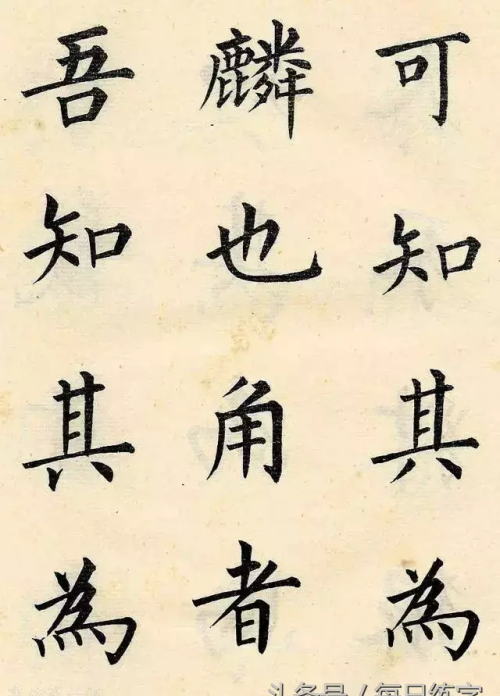 可知其為
麟也角者
吾知其為
头条号/每日练字